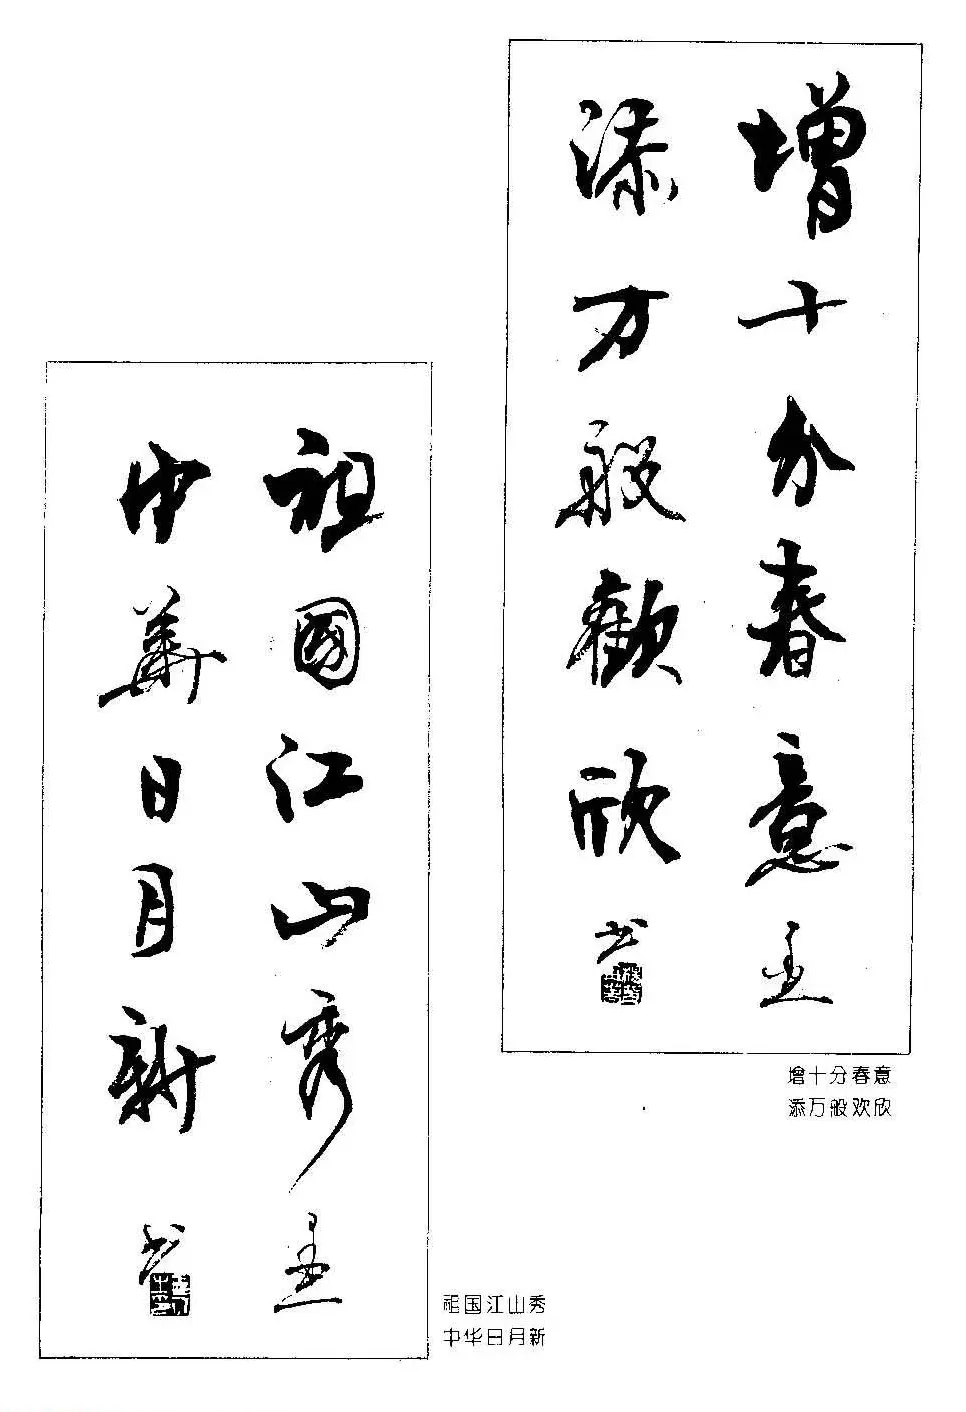 增十分春意
添万般歡欣 书
增十分春意
添万般欢欣
祖國江山秀
中華日月新 书
祖国江山秀
中华日月新